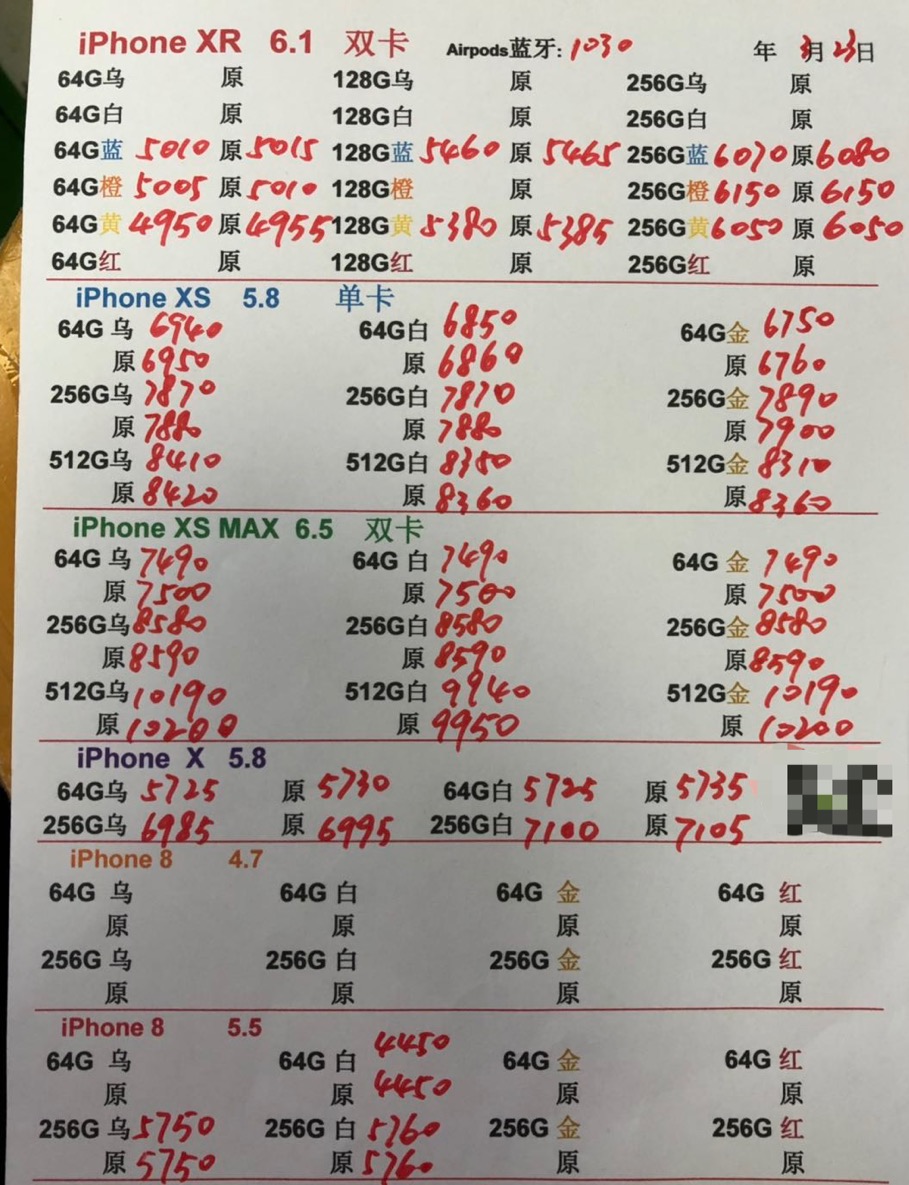 iPhone XR 6.1 双卡 Airpods蓝牙:1030 年 3月23日
64G乌 原 128G乌 原 256G乌 原
64G白 原 128G白 原 256G白 原
64G蓝 5010 原5015 128G蓝 5460 原 5465 256G蓝 6070 原6080
64G橙 5005 原5010 128G橙 原 256G橙 6150 原 6150
64G黄 4950 原4955 128G黄 5380 原 5385 256G黄 6050 原 6050
64G红 原 128G红 原 256G红 原
iPhone XS 5.8 单卡
64G 乌 6940 64G白 6850 64G金 6750
原 6950 原 6860 原 6760
256G乌 7870 256G白 7870 256G金 7890
原 7880 原 7880 原 7900
512G乌 8410 512G白 8350 512G金 8310
原 8420 原 8360 原 8360
iPhone XS MAX 6.5 双卡
64G 乌 7490 64G 白 7490 64G 金 7490
原 7500 原 7500 原 7500
256G乌 8580 256G白 8580 256G金 8580
原 8590 原 8590 原 8590
512G乌 10190 512G白 9940 512G金 10190
原 10200 原 9950 原 10200
iPhone X 5.8
64G乌 5725 原 5730 64G白 5725 原 5735
256G乌 6985 原 6995 256G白 7100 原 7105
iPhone 8 4.7
64G 乌 64G 白 64G 金 64G 红
原 原 原 原
256G 乌 256G 白 256G 金 256G 红
原 原 原 原
iPhone 8 5.5
64G 乌 64G 白 4450 64G 金 64G 红
原 原 4450 原 原
256G 乌 5750 256G 白 5760 256G 金 256G 红
原 5750 原 5760 原 原